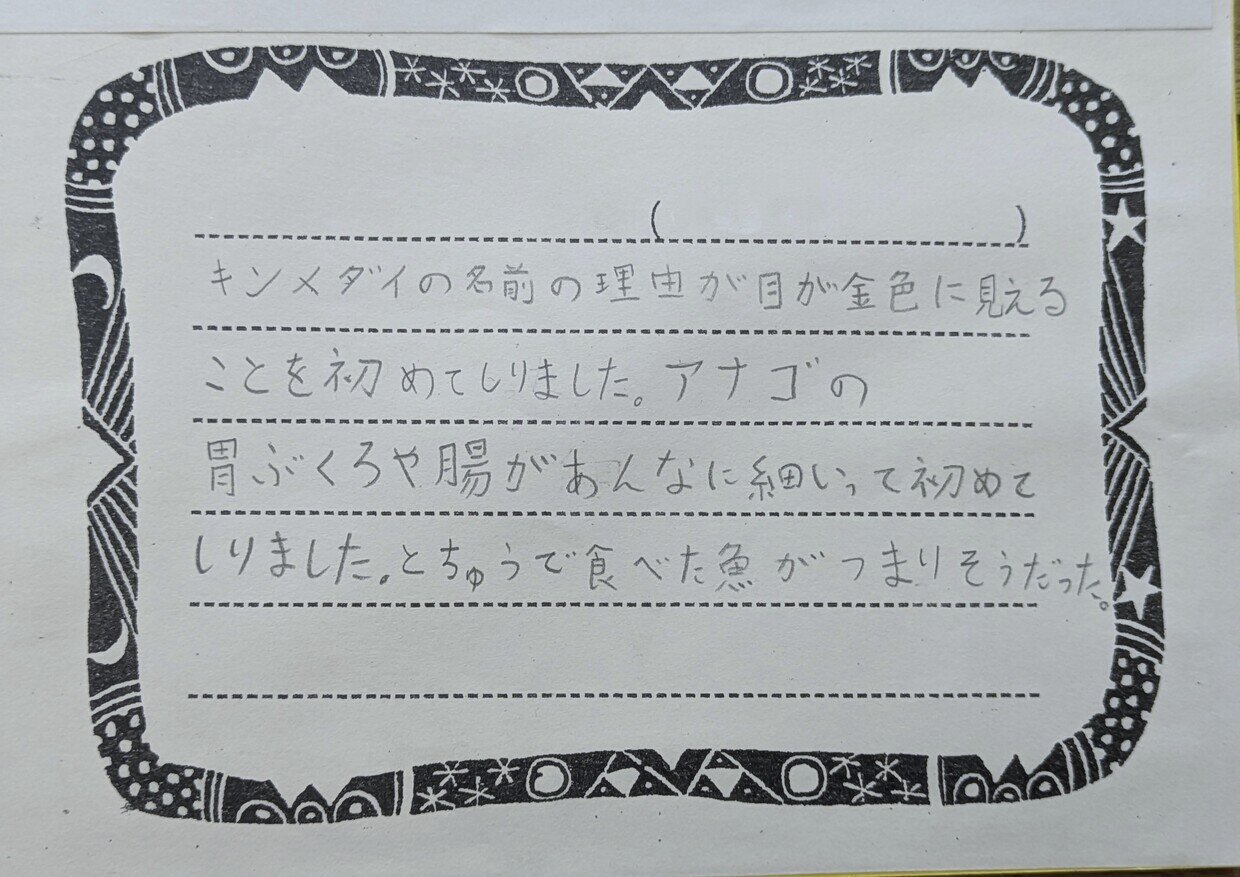 (　　　　　　)
キンメダイの名前の理由が目が金色に見える
ことを初めてしりました。アナゴの
胃ぶくろや腸があんなに細いって初めて
しりました。とちゅうで食べた魚がつまりそうだった。